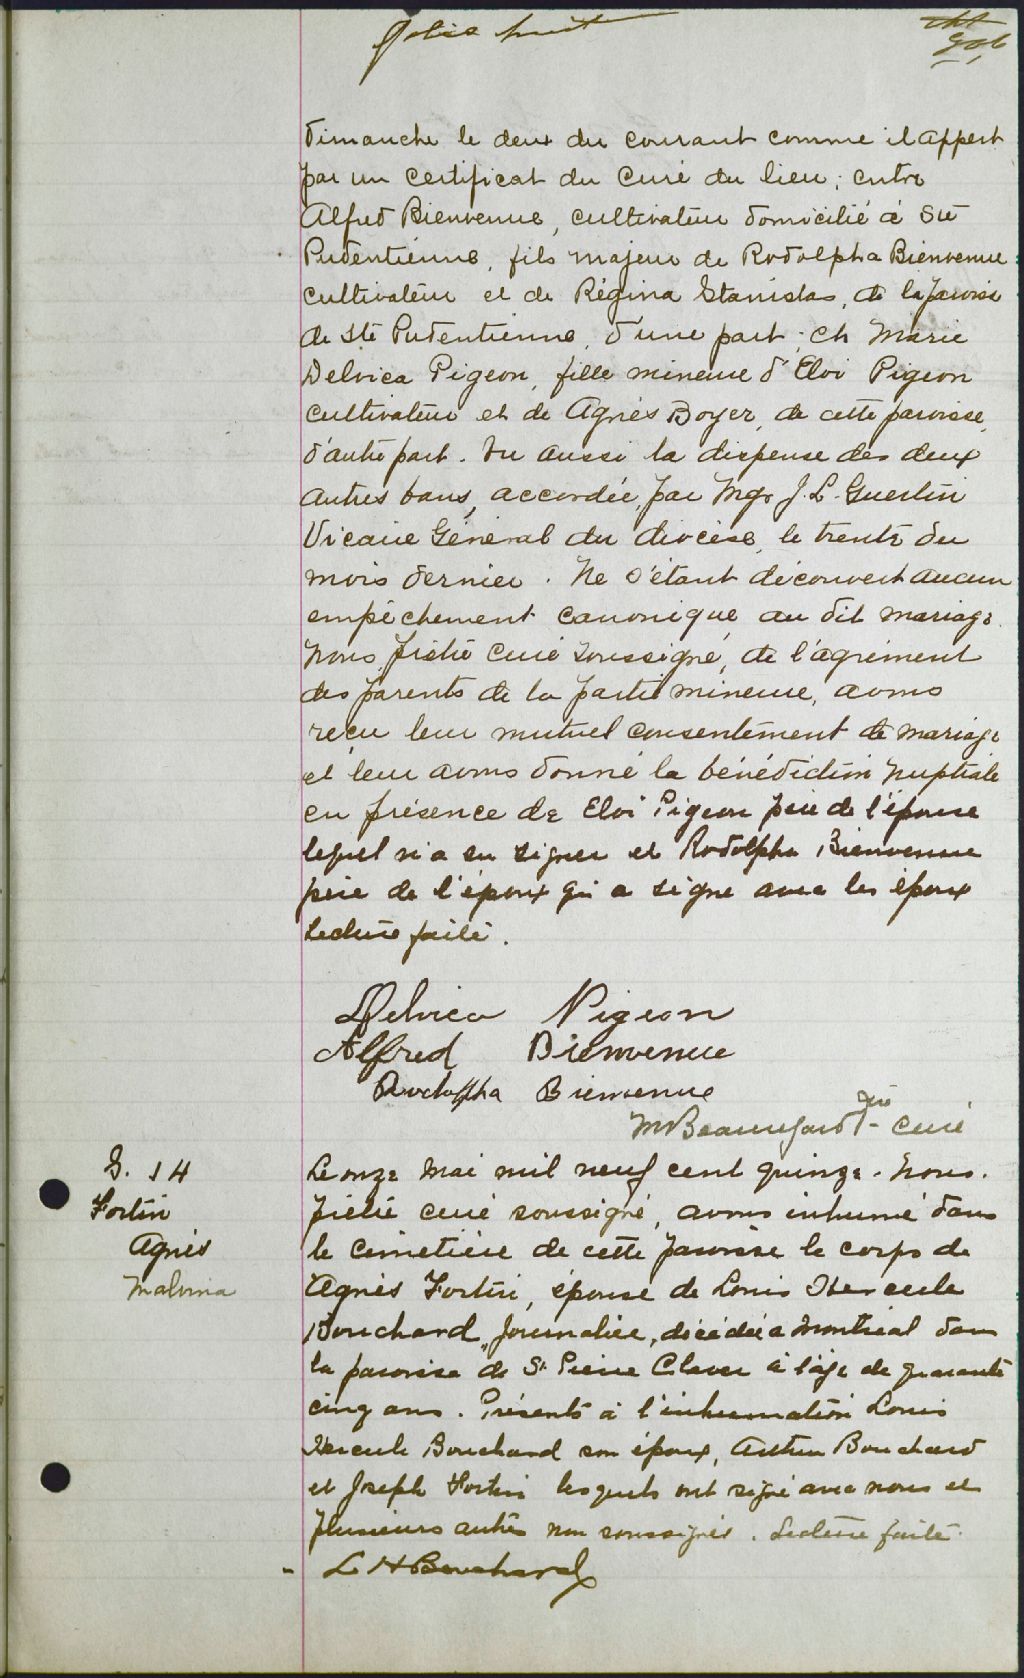 folio huit
dimanche le deux du courant comme il appert
par un certificat du curé du lieu; entre
Alfred Bienvenue, cultivateur domicilié à Ste
Pudentienne, fils majeur de Rodolpha Bienvenue
cultivateur et de Régina Stanislas, de la paroisse
de Ste Pudentienne, d'une part; et Marie
Delvica Pigeon, fille mineure d'Eloi Pigeon
cultivateur et de Agnès Boyer, de cette paroisse,
d'autre part. Vu aussi la dispense des deux
autres bans, accordée, par Mgr J. L. Guertin
Vicaire Général du diocèse, le trente du
mois dernier. Ne s'étant découvert aucun
empêchement canonique au dit mariage.
Nous, prêtre curé soussigné, de l'agrément
des parents de la partie mineure, avons
reçu leur mutuel consentement de mariage
et leur avons donné la bénédiction nuptiale
en présence de Eloi Pigeon père de l'épouse
lequel n'a su signer et Rodolpha Bienvenue
père de l'époux qui a signé avec les époux
Lecture faite.
Delvica Pigeon
Alfred Bienvenue
Rodolpha Bienvenue
M Beauregard ptre curé
S. 14
Fortin
Agnès
Malvina
Le onze mai mil neuf cent quinze. Nous.
prêtre curé soussigné, avons inhumé dans
le cimetière de cette paroisse le corps de
Agnès Fortin, épouse de Louis Hercule
Bouchard, journalier, décédée à Montréal dans
la paroisse de St Pierre Claver à l'âge de quarante
cinq ans. Présents à l'inhumation Louis
Hercule Bouchard son époux, Arthur Bouchard
et Joseph Fortin lesquels ont signé avec nous et
plusieurs autres non soussignés. Lecture faite.
L H Bouchard